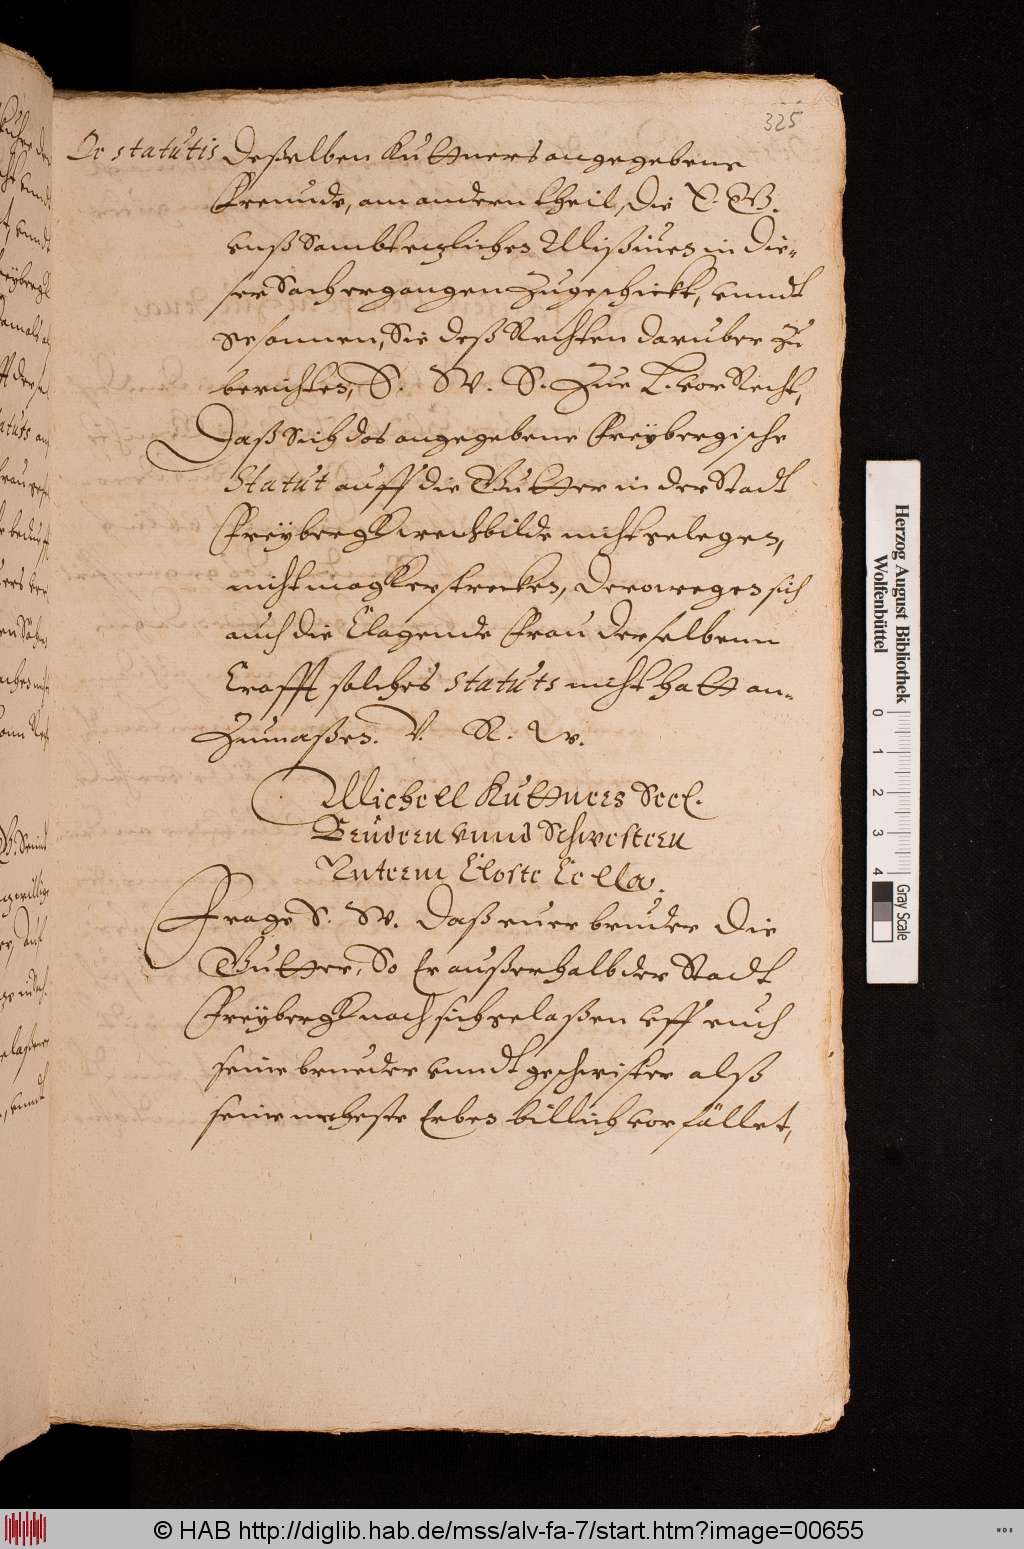 325
De statutis
Deßelben Kuttners angegebene
Freunde, am andern theil, die E. EW.
unß sambt etzlichen Mißiuen in die-
ser Sach ergangen zugeschickt, vnndt
gesonnen, Sie deß Rechten daruber zu
berichten, S. W. S. Zue L. vor Recht,
Daß sich das angegebene Freybergische
Statut auff die Gutter in der Stadt
Freybergk weichbilde nicht gelegen,
nicht magk erstrecken, derowegen sich
auch die Clagende Frau derselbenn
Crafft solches statuts nicht hatt an-
Zumaßen. V. R. W.
Michell Kuttners Seel.
Brudern vnnd Schwestern
Unterm Closte Cella.
Frage S. W. Daß euer bruder die
Gutter, So er außerhalb der Stadt
Freybergk nach sich gelaßen vff euch
seine brueder vnndt geschwister alß
seine neheste Erben billich vorfället,
Herzog August Bibliothek
Wolfenbüttel
0 1 2 3 4
Gray Scale
© HAB http://diglib.hab.de/mss/alv-fa-7/start.htm?image=00655